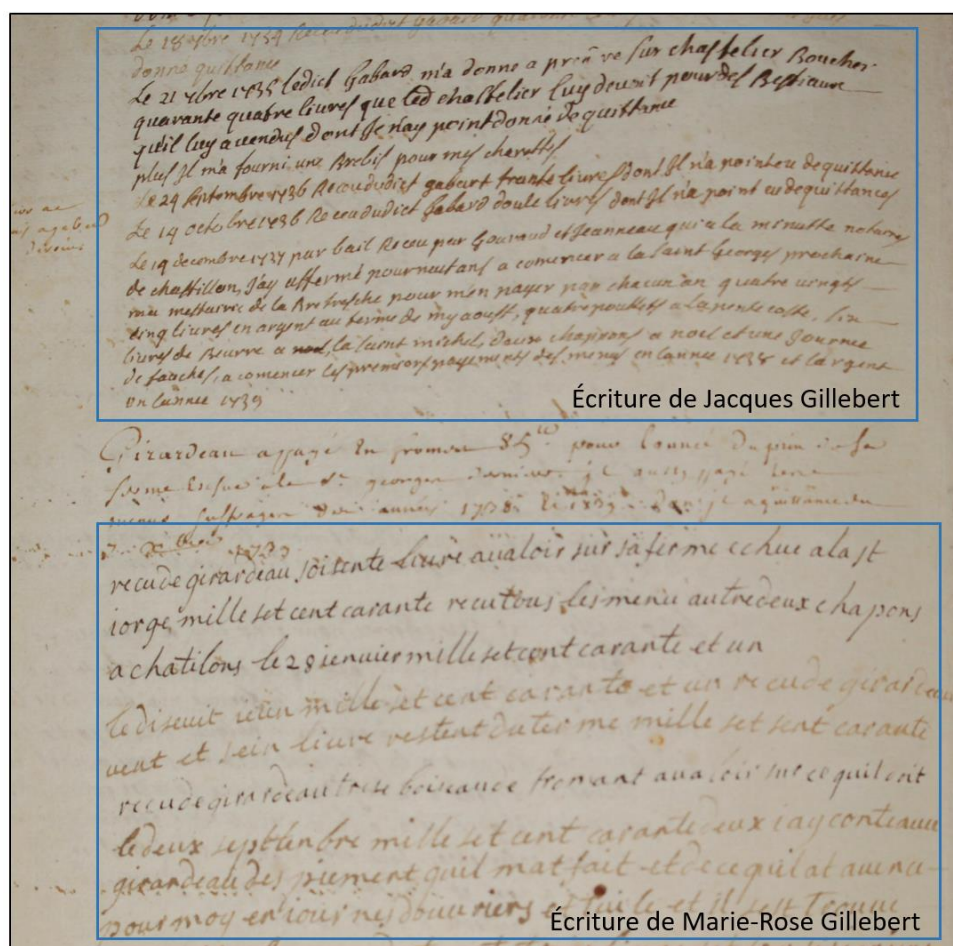 Le 18 xbre 1734 Receu dudict Gabard quarante
donné quittance
Le 21 xbre 1735 ledict Gabard m'a donné a prandre sur chastelier Boucher
quarante quatre livres que led chastelier luy devoit pour des Bestiaux
qu'il luy a vendus dont Je n'ay point donné de quittance
plus Il m'a fourni une Brebis pour mes charettes
Le 24 septembre 1736 Receu dudict gabart trante livres dont Il n'a point eu de quittance
Le 14 octobre 1736 Receu dudict Gabard doule livres dont Il n'a point eu de quittances
Le 19 decembre 1737 par bail Receu par Gouraud et Jeanneau qui a la minutte notaires
de chastillon, J'ay affermé pour neuf ans a comencer a la saint Georges prochaine
ma mestairie de la Bretesche pour m'en payer par chacun an quatre vingts
cinq livres en argent au terme de my aoust, quatre poullets a la pentecoste, six
livres de Beurre a la saint michel, deux chapons a noel et une Journée
de fauches, a comencer les premiers payements des menus en lannee 1738 et largent
en lannee 1739
Écriture de Jacques Gillebert
Girardeau a payé En froment pour l'année du prix de sa
ferme Echue a la St georges derniere je aussy payé
menus suffrages des années 1738 et 1739 dont je a quittance du
1739
recu de girardeau soisente livre avaloir sur sa ferme echue a la st
iorge mille set cent carante recu tous les menu autre deux chapons
a chatilons le 28 ienvier mille set cent carante et un
le diseuit iuin mille set cent carante et un recu de girardeau
vent et sein livre restent du terme mille set sent carante
recu de girardeau trese boiseau de fromant avaloir sur ce quil doit
le deux septtenbre mille set cent carante deux iay conte avec
girardeau des piement quil mat fait et de ce quil at avence
pour moy en iournes douvriers et tuile et il sest trouvé
Écriture de Marie-Rose Gillebert